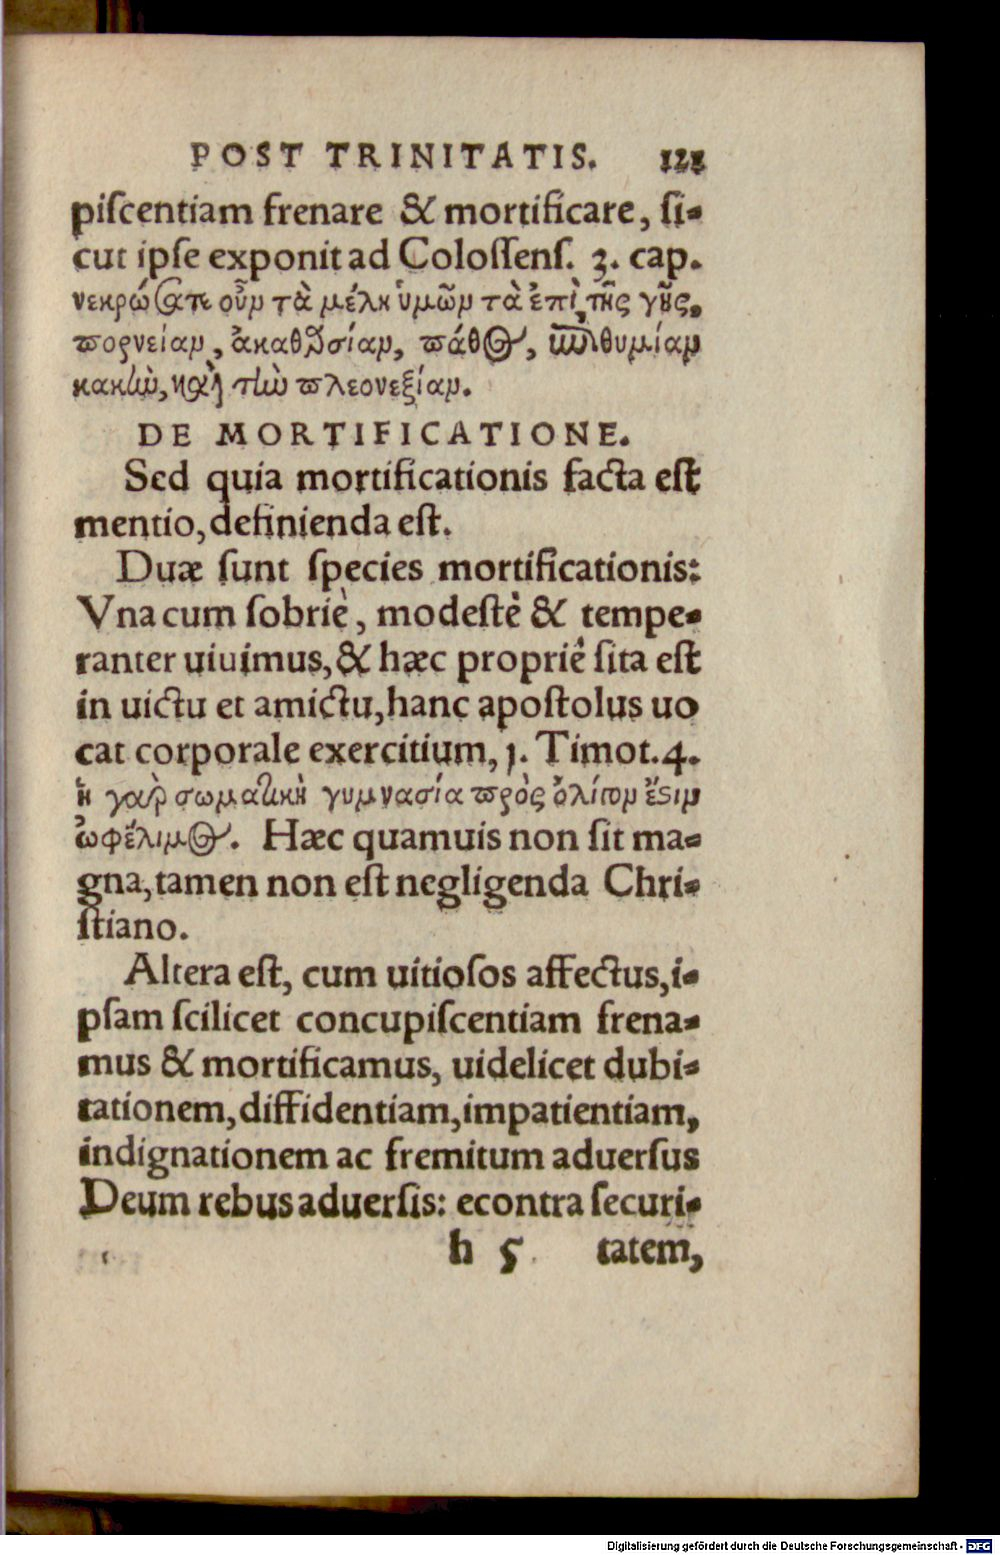 POST TRINITATIS. 121
piſcentiam frenare & mortificare, ſi-
cut ipſe exponit ad Coloſſenſ. 3. cap.
νεκρώσατε οὖν τὰ μέλη ὑμῶν τὰ ἐπὶ τῆς γῆς,
πορνείαν, ἀκαθαρσίαν, πάθος, ἐπιθυμίαν
κακὴν, καὶ τὴν πλεονεξίαν.
DE MORTIFICATIONE.
Sed quia mortificationis facta eſt
mentio, definienda eſt.
Duæ ſunt ſpecies mortificationis:
Vna cum ſobriè, modeſtè & tempe-
ranter uiuimus, & hæc propriè ſita eſt
in uictu et amictu, hanc apoſtolus uo
cat corporale exercitium, 1. Timot. 4.
ἡ γὰρ σωματικὴ γυμνασία πρὸς ὀλίγον ἔστιν
ὠφέλιμος. Hæc quamuis non ſit ma-
gna, tamen non eſt negligenda Chri-
ſtiano.
Altera eſt, cum uitioſos affectus, i-
pſam ſcilicet concupiſcentiam frena-
mus & mortificamus, uidelicet dubi-
tationem, diffidentiam, impatientiam,
indignationem ac fremitum aduerſus
Deum rebus aduerſis: econtra ſecuri-
h 5 tatem,
Digitalisierung gefördert durch die Deutsche Forschungsgemeinschaft - DFG